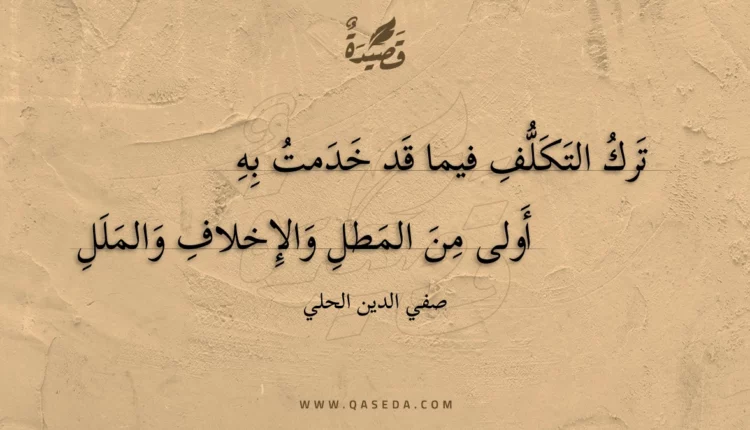 قَصِيْدَةٌ
تَركُ التَكَلُّفِ فيما قَد خَدَمتُ بِهِ
أَولى مِنَ المَطلِ وَالإِخلافِ وَالمَلَلِ
صفي الدين الحلي
WWW.QASEDA.COM